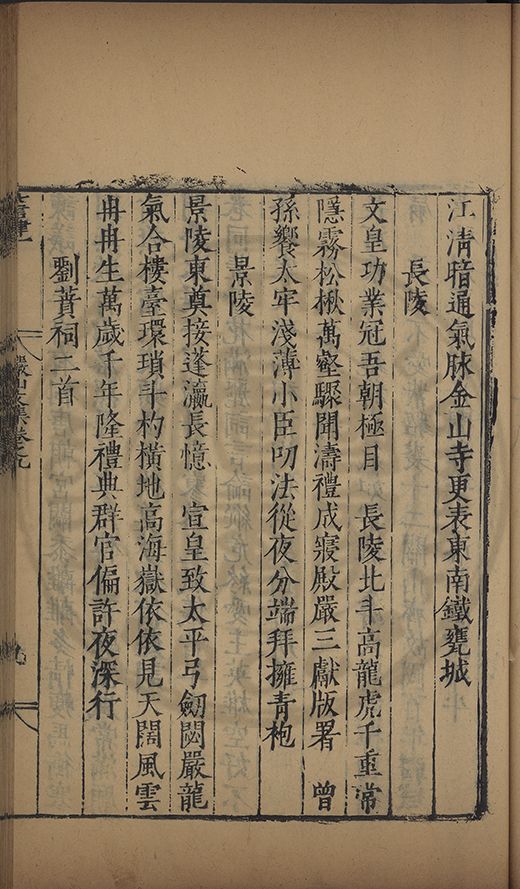 江清暗通氣脉金山寺更表東南鐵甕城
長陵
文皇功業冠吾朝極目 長陵北斗高龍虎千重常
隱霧松楸萬壑驟聞濤禮成寢殿嚴三獻版署 曾
孫饗太牢淺薄小臣叨法從夜分端拜擁青袍
景陵
景陵東奠接蓬瀛長憶 宣皇致太平弓劒閟嚴龍
氣合樓臺環瑣斗杓橫地高海嶽依依見天闊風雲
冉冉生萬歲千年隆禮典群官偏許夜深行
劉蕡祠二首